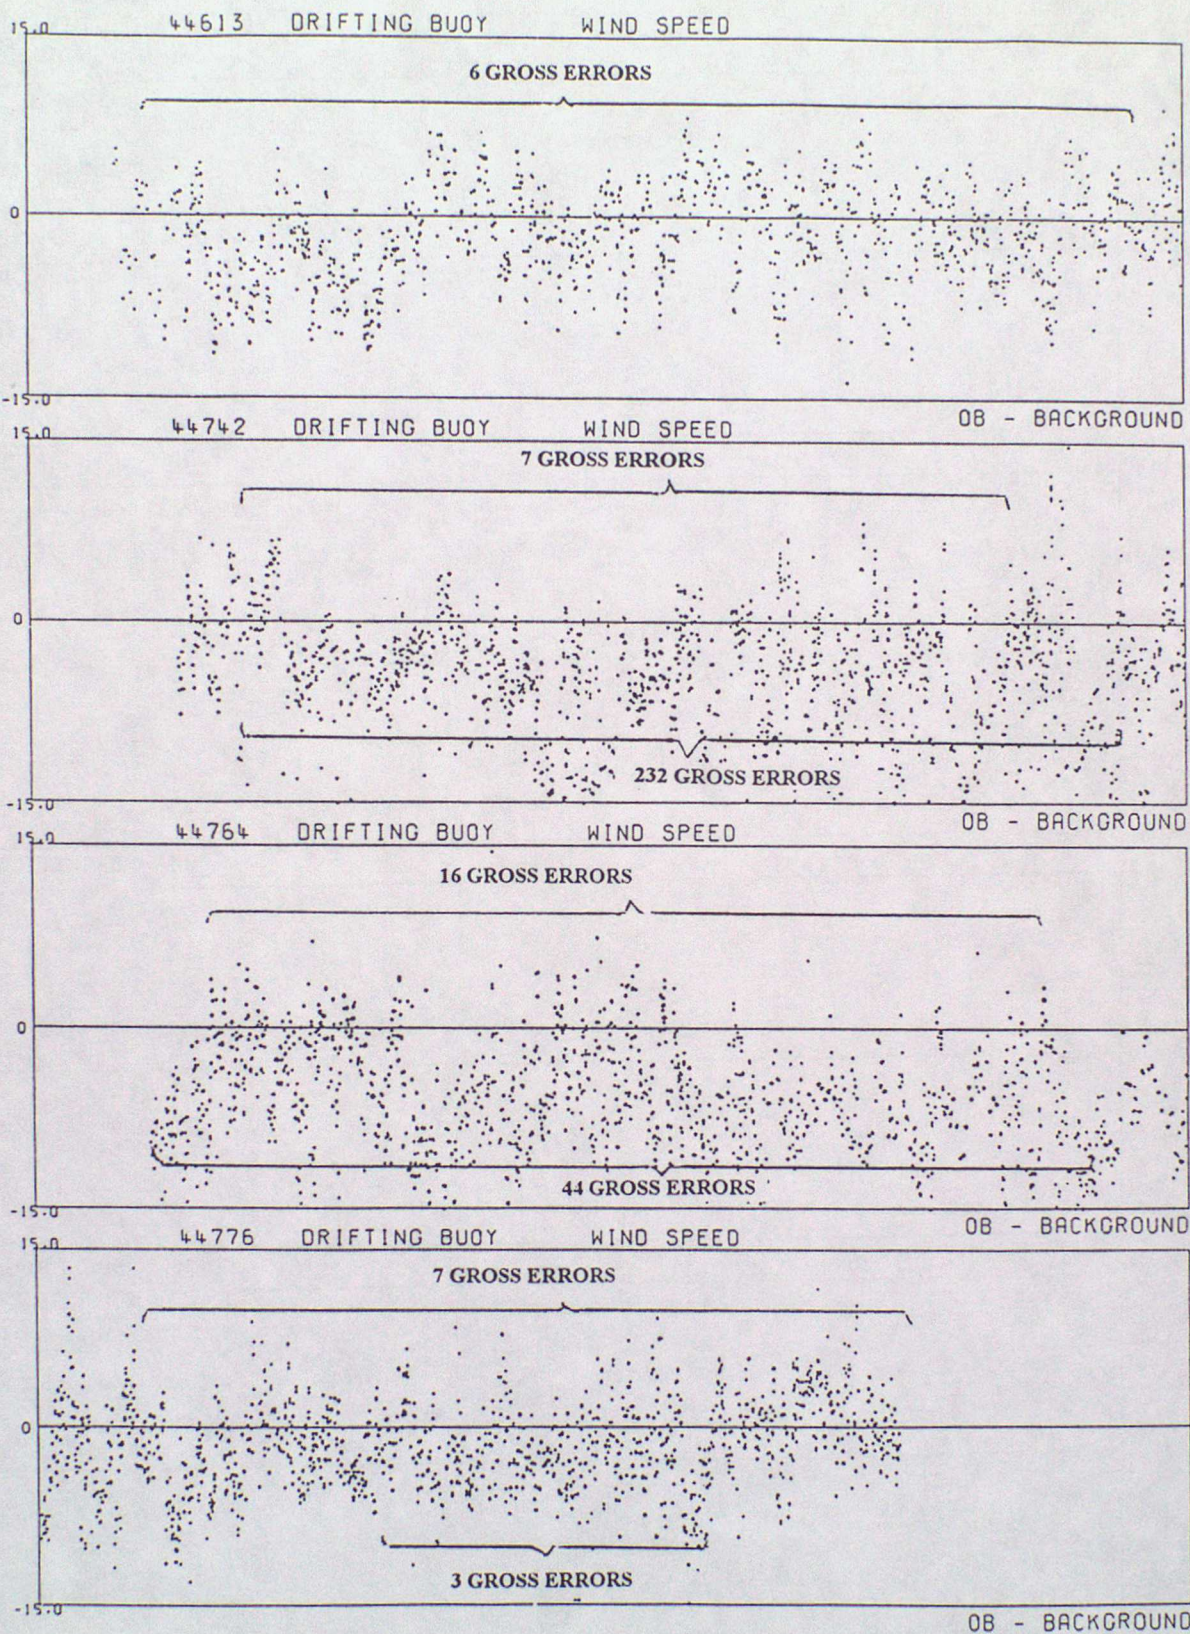 44613 DRIFTING BUOY WIND SPEED
15.0
6 GROSS ERRORS
0
-15.0
OB - BACKGROUND
44742 DRIFTING BUOY WIND SPEED
15.0
7 GROSS ERRORS
0
232 GROSS ERRORS
-15.0
OB - BACKGROUND
44764 DRIFTING BUOY WIND SPEED
15.0
16 GROSS ERRORS
0
44 GROSS ERRORS
-15.0
OB - BACKGROUND
44776 DRIFTING BUOY WIND SPEED
15.0
7 GROSS ERRORS
0
3 GROSS ERRORS
-15.0
OB - BACKGROUND